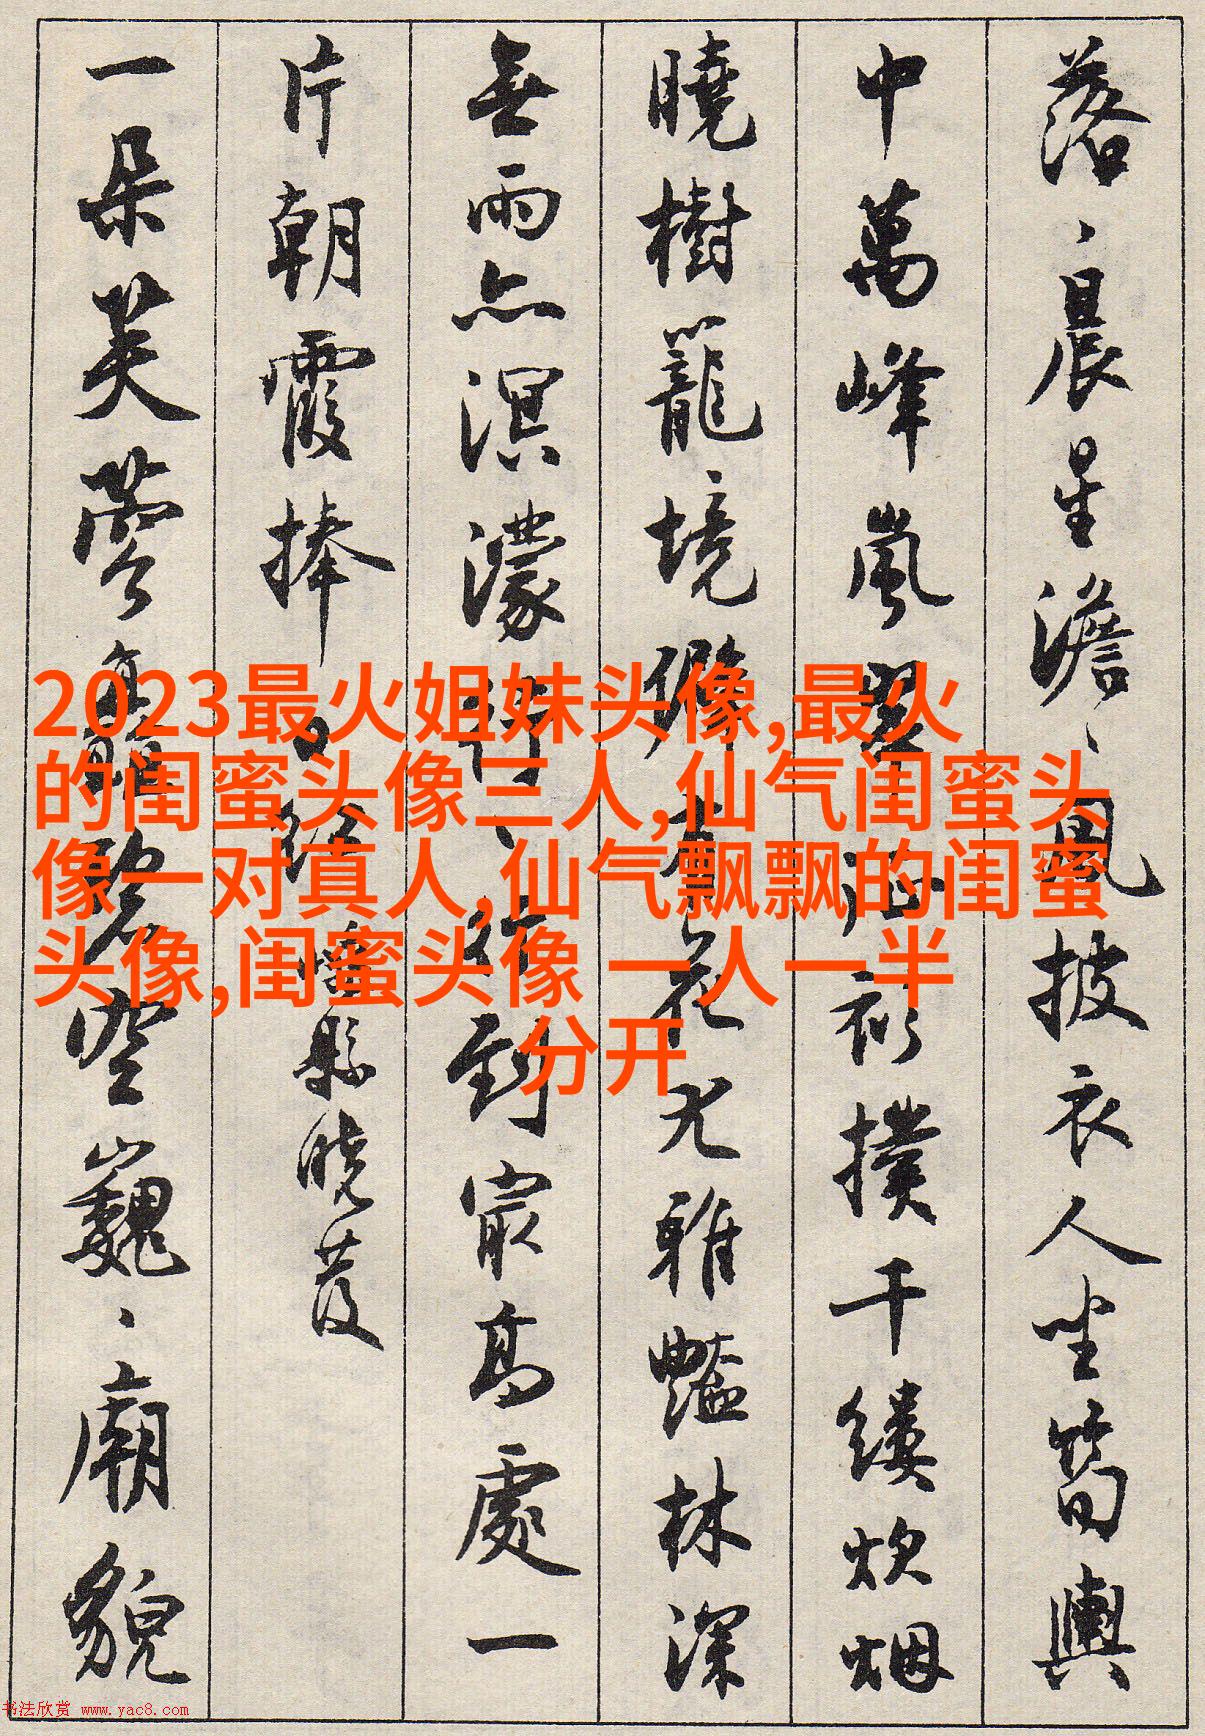 落、晨星澹、風披衣人坐筍輿
中萬峰嵐翠泌衫撲千縷炊烟
曉樹籠、境僻花尤雅豔林深
無雨亦溟濛行、行到最高處一
片朝霞捧日
嶧縣曉發
一朵芙蓉矗碧空巍、廟貌
2023最火姐妹头像,最火
的闺蜜头像三人,仙气闺蜜头
像一对真人,仙气飘飘的闺蜜
头像,闺蜜头像 一人一半
分开
书法欣赏 www.yac8.com